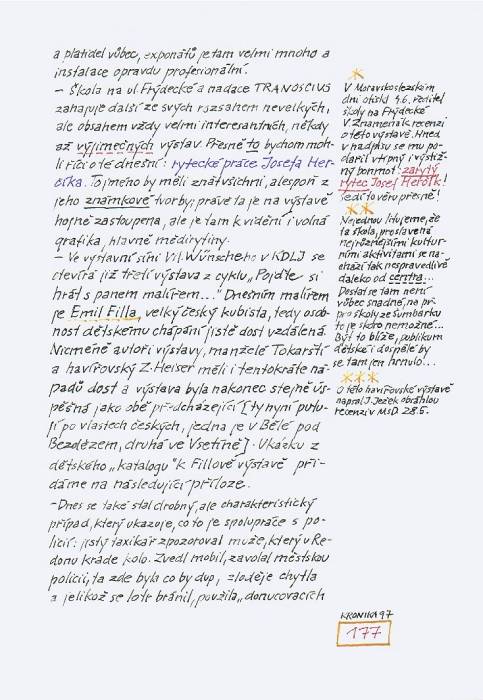 a platidel vůbec, exponátů je tam velmi mnoho a
instalace opravdu profesionální.
– Škola na ul. Frýdecké a nadace TRANOSCIUS
zahajuje další ze svých rozsahem nevelkých,
ale obsahem vždy velmi interesantních, někdy
až výjimečných výstav. Přesně to bychom moh-
li říci o té dnešní: rytecké práce Josefa Her-
číka. To jméno by měli znát všichni, alespoň z
jeho známkové tvorby; právě ta je na výstavě
hojně zastoupena, ale je tam k vidění i volná
grafika, hlavně mědirytiny.
– Ve výstavní síni Vil. Wünscheho v KDLJ se
otevírá již třetí výstava z cyklu „Pojďte si
hrát s panem malířem..." Dnešním malířem
je Emil Filla, velký český kubista, tedy osob-
nost dětskému chápání jistě dost vzdálená.
Nicméně autoři výstavy, manželé Tokarští
a havířovský Z. Heiser měli i tentokráte ná-
padů dost a výstava byla nakonec stejně ús-
pěšná jako obě předcházející [ty nyní putu-
jí po vlastech českých, jedna je v Bělé pod
Bezdězem, druhá ve Vsetíně]. Ukázku z
dětského „katalogu" k Fillově výstavě při-
dáme na následující příloze.
– Dnes se také stal drobný, ale charakteristický
případ, který ukazuje, co to je spolupráce s po-
licií: jistý taxikář zpozoroval muže, který u Re-
donu krade kolo. Zvedl mobil, zavolal městskou
policii, ta zde byla co by dup, zloděje chytla
a jelikož se lotr bránil, použila „donucovacích
*
V Moravskoslezském
dni otiskl 4.6. ředitel
školy na Frýdecké
V. Znamenák recenzi
o této výstavě. Hned
v nadpisu se mu po-
dařil vtipný i výstiž-
ný bonmot: zarytý
rytec Josef Herčík!
Sedí to věru přesně!
**
Nejednou litujeme, že
ta škola, proslavená
nejrůznějšími kultur-
ními aktivitami se na-
chází tak nespravedlivě
daleko od centra...
Dostat se tam není
vůbec snadné, na př.
pro školy ze Šumbarku
to je skoro nemožné...
Být to blíže, publikum
dětské i dospělé by
se tam jen hrnulo...
***
O této havířovské výstavě
napsal J. Ježek obsáhlou
recenzi v MSD 28.5.
KRONIKA 97
177